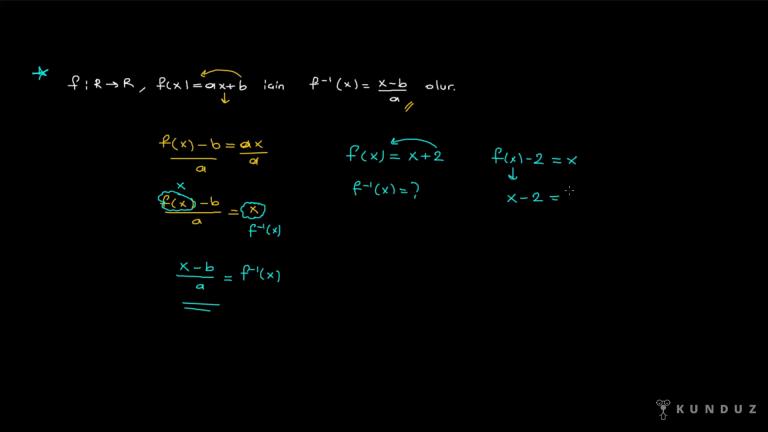 f : R → R , f(x) = ax+b için f⁻¹(x) = x-b / a olur.
f(x) - b / a = ax / a
x
f(x) - b / a = x
f⁻¹(x)
x-b / a = f⁻¹(x)
f(x) = x+2
f⁻¹(x) = ?
f(x) - 2 = x
x - 2 =
KUNDUZ